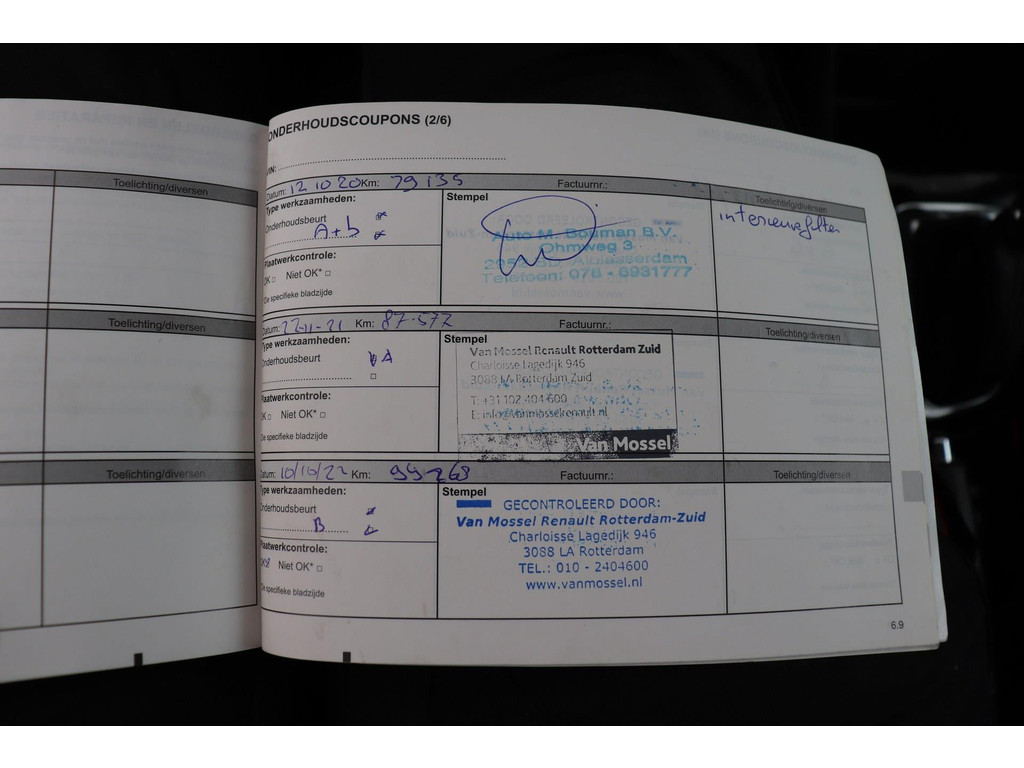 Toelichting/diversen
Toelichting/diversen
Toelichting/diversen
ONDERHOUDSCOUPONS (2/6)
VIN:
Datum: 12 10 20 Km: 79135 Factuurnr.:
Type werkzaamheden:
Onderhoudsbeurt
A+b
Plaatwerkcontrole:
OK Niet OK*
Zie specifieke bladzijde
Stempel
Auto M. Bouman B.V.
Ohmweg 3
2952 BD Alblasserdam
Telefoon: 078 - 6931777
Toelichting/diversen
interieurfilter
Datum: 22-11-21 Km: 87.577 Factuurnr.:
Type werkzaamheden:
Onderhoudsbeurt A
Plaatwerkcontrole:
OK Niet OK*
Zie specifieke bladzijde
Stempel
Van Mossel Renault Rotterdam Zuid
Charloisse Lagedijk 946
3088 LA Rotterdam Zuid
T: +31 102 404 600
E: info@vanmosselrenault.nl
Van Mossel
Toelichting/diversen
Datum: 10/10/22 Km: 99268 Factuurnr.:
Type werkzaamheden:
Onderhoudsbeurt
B
Plaatwerkcontrole:
OK Niet OK*
Zie specifieke bladzijde
Stempel
GECONTROLEERD DOOR:
Van Mossel Renault Rotterdam-Zuid
Charloisse Lagedijk 946
3088 LA Rotterdam
TEL.: 010 - 2404600
www.vanmossel.nl
Toelichting/diversen
6.9